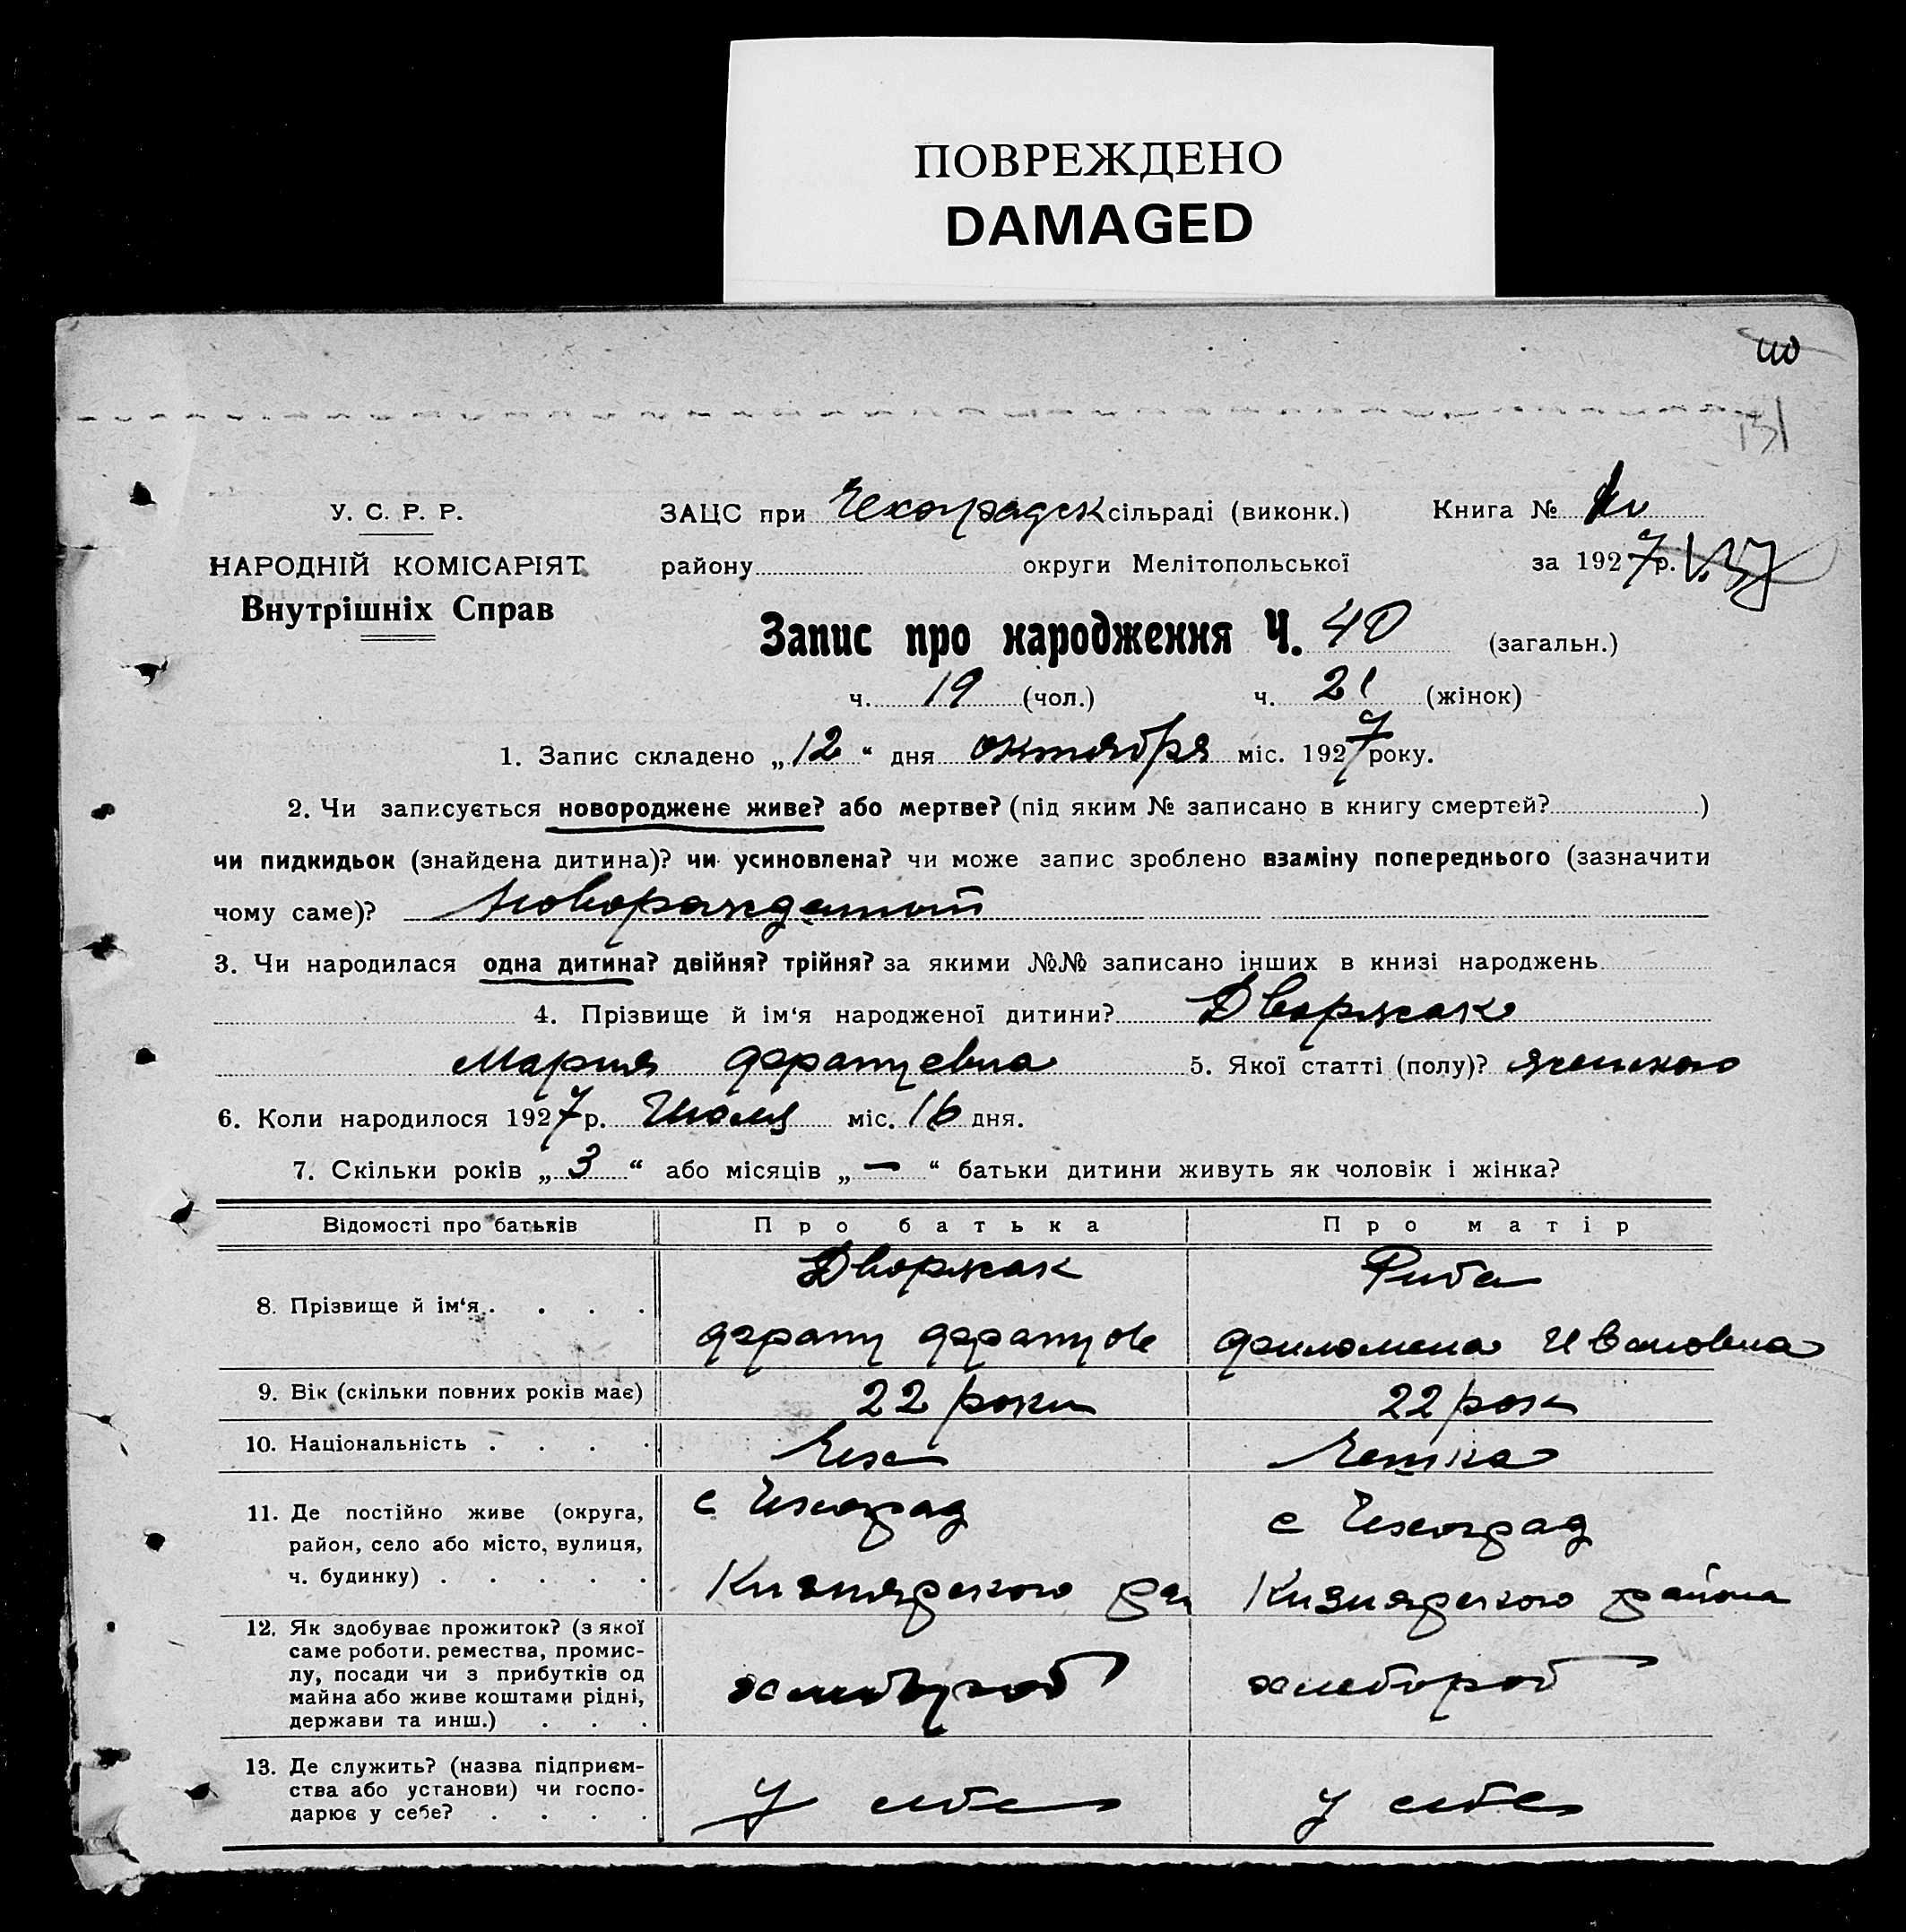 ПОВРЕЖДЕНО
DAMAGED
40
131
У. С. Р. Р.
НАРОДНІЙ КОМІСАРІЯТ
Внутрішніх Справ
ЗАЦС при Чехоградск сільраді (виконк.) Книга №
району округи Мелітопольської за 1927 р.
Запис про народження Ч. 40 (загальн.)
ч. 19 (чол.) ч. 21 (жінок)
1. Запис складено „12“ дня октября міс. 1927 року.
2. Чи записується новороджене живе? або мертве? (під яким № записано в книгу смертей? )
чи пидкидьок (знайдена дитина)? чи усиновлена? чи може запис зроблено взаміну попереднього (зазначити
чому саме)? новорожденный
3. Чи народилася одна дитина? двійня? трійня? за якими №№ записано інших в книзі народжень
4. Прізвище й ім‘я народженої дитини? Дворжак
Мария Францевна 5. Якої статті (полу)? женского
6. Коли народилося 1927 р. Июля міс. 16 дня.
7. Скільки років „3“ або місяців „—“ батьки дитини живуть як чоловік і жінка?
Відомості про батьків Про батька Про матір
8. Прізвище й ім‘я Дворжак Франц Францов Риба Филомена Ивановна
9. Вік (скільки повних років має) 22 роки 22 рок
10. Національність Чех Чешка
11. Де постійно живе (округа,
район, село або місто, вулиця,
ч. будинку)
с Чехоград
Кизиярского ра
с Чехоград
Кизиярского района
12. Як здобуває прожиток? (з якої
саме роботи. ремества, промис-
лу, посади чи з прибутків од
майна або живе коштами рідні,
держави та инш.)
хлебороб хлебороб
13. Де служить? (назва підприєм-
ства або установи) чи госпо-
дарює у себе?
у себе у себе